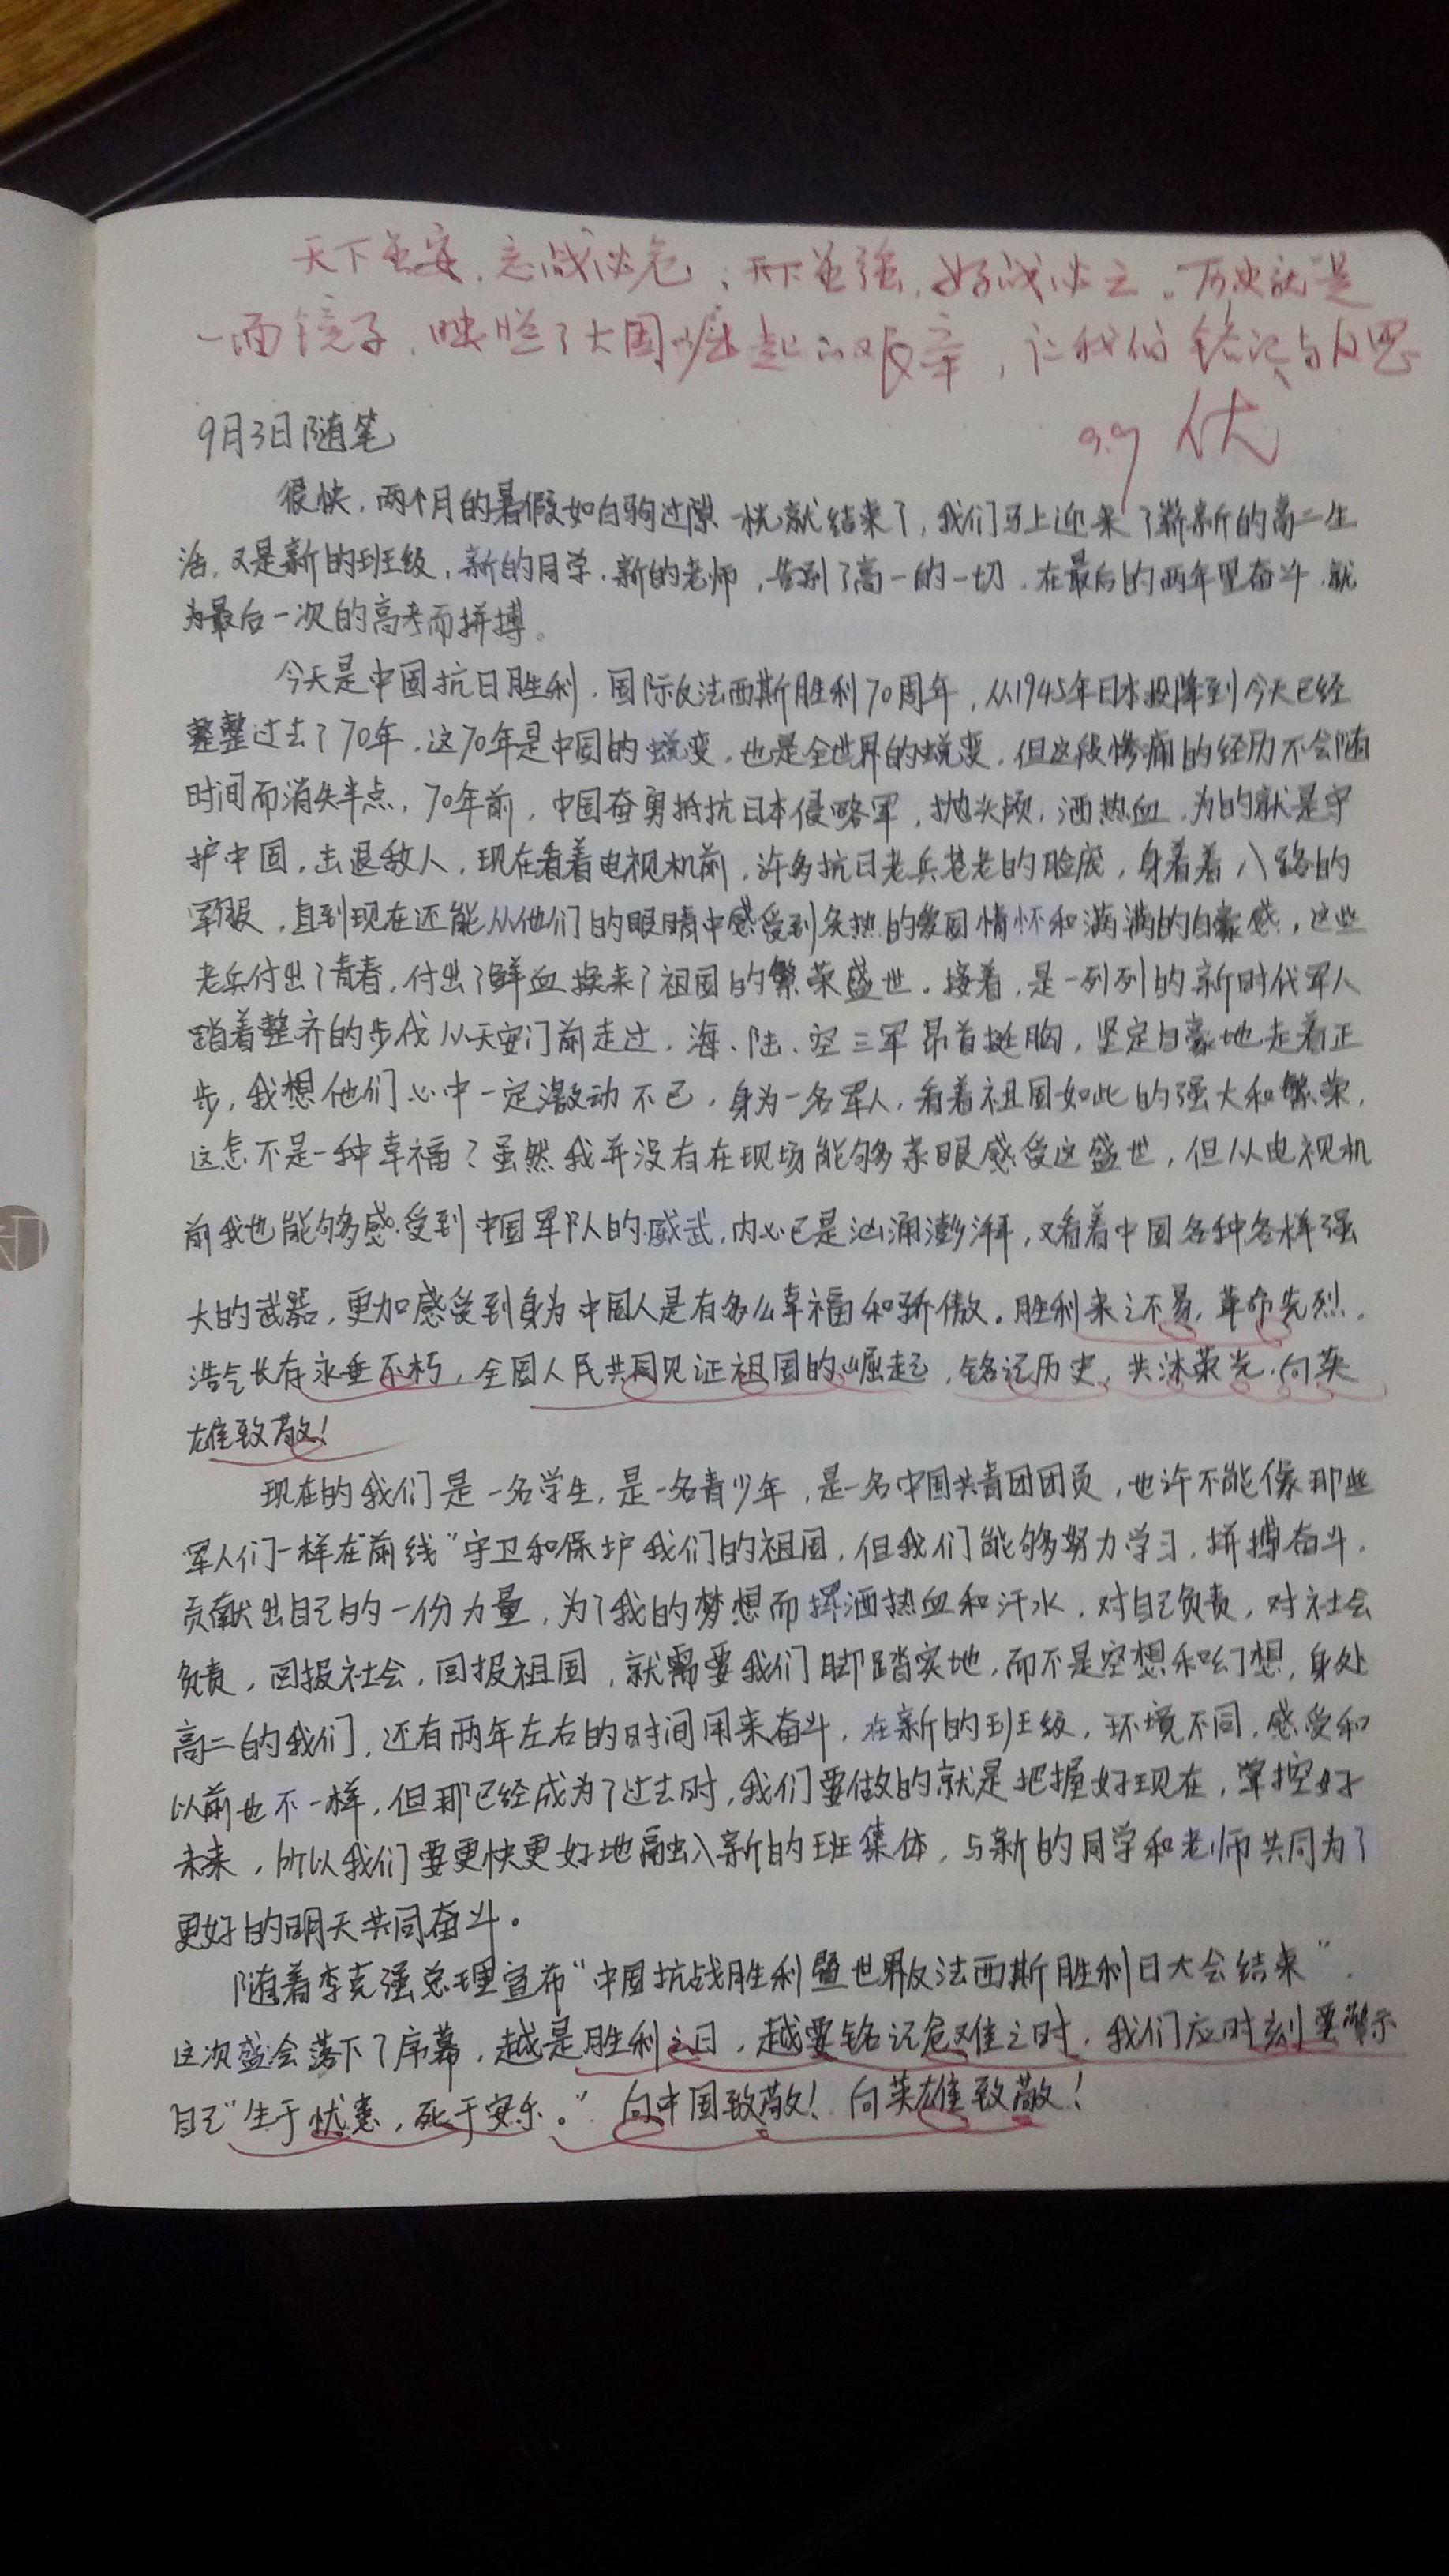 天下虽安，忘战必危；天下虽强，好战必亡。历史就是
一面镜子，映照了大国崛起的艰辛，让我们铭记与反思
9.9 优
9月3日随笔
很快，两个月的暑假如白驹过隙一恍就结束了，我们马上迎来了崭新的高二生
活，又是新的班级，新的同学，新的老师，告别了高一的一切，在最后的两年里奋斗，就
为最后一次的高考而拼搏。
今天是中国抗日胜利，国际反法西斯胜利70周年，从1945年日本投降到今天已经
整整过去了70年，这70年是中国的蜕变，也是全世界的蜕变，但这段惨痛的经历不会随
时间而消失半点，70年前，中国奋勇抵抗日本侵略军，抛头颅，洒热血，为的就是守
护中国，击退敌人，现在看着电视机前，许多抗日老兵苍老的脸庞，身着着八路的
军服，直到现在还能从他们的眼睛中感受到炙热的爱国情怀和满满的自豪感，这些
老兵付出了青春，付出了鲜血换来了祖国的繁荣盛世。接着，是一列列的新时代军人
踏着整齐的步伐从天安门前走过，海、陆、空三军昂首挺胸，坚定自豪地走着正
步，我想他们心中一定激动不已，身为一名军人，看着祖国如此的强大和繁荣，
这怎不是一种幸福？虽然我并没有在现场能够亲眼感受这盛世，但从电视机
前我也能够感受到中国军队的威武，内心已是汹涌澎湃，又看着中国各种各样强
大的武器，更加感受到身为中国人是有多么幸福和骄傲。胜利来之不易，革命先烈，
浩气长存永垂不朽，全国人民共同见证祖国的崛起，铭记历史，共沐荣光，向英
雄致敬！
现在的我们是一名学生，是一名青少年，是一名中国共青团团员，也许不能像那些
军人们一样在“前线”守卫和保护我们的祖国，但我们能够努力学习，拼搏奋斗，
贡献出自己的一份力量，为了我的梦想而挥洒热血和汗水，对自己负责，对社会
负责，回报社会，回报祖国，就需要我们脚踏实地，而不是空想和幻想，身处
高二的我们，还有两年左右的时间用来奋斗，在新的班级，环境不同，感受和
以前也不一样，但那已经成为了过去时，我们要做的就是把握好现在，掌控好
未来，所以我们要更快更好地融入新的班集体，与新的同学和老师共同为了
更好的明天共同奋斗。
随着李克强总理宣布“中国抗战胜利暨世界反法西斯胜利日大会结束”，
这次盛会落下了序幕，越是胜利之日，越要铭记危难之时，我们应时刻要警示
自己“生于忧患，死于安乐。”向中国致敬！向英雄致敬！